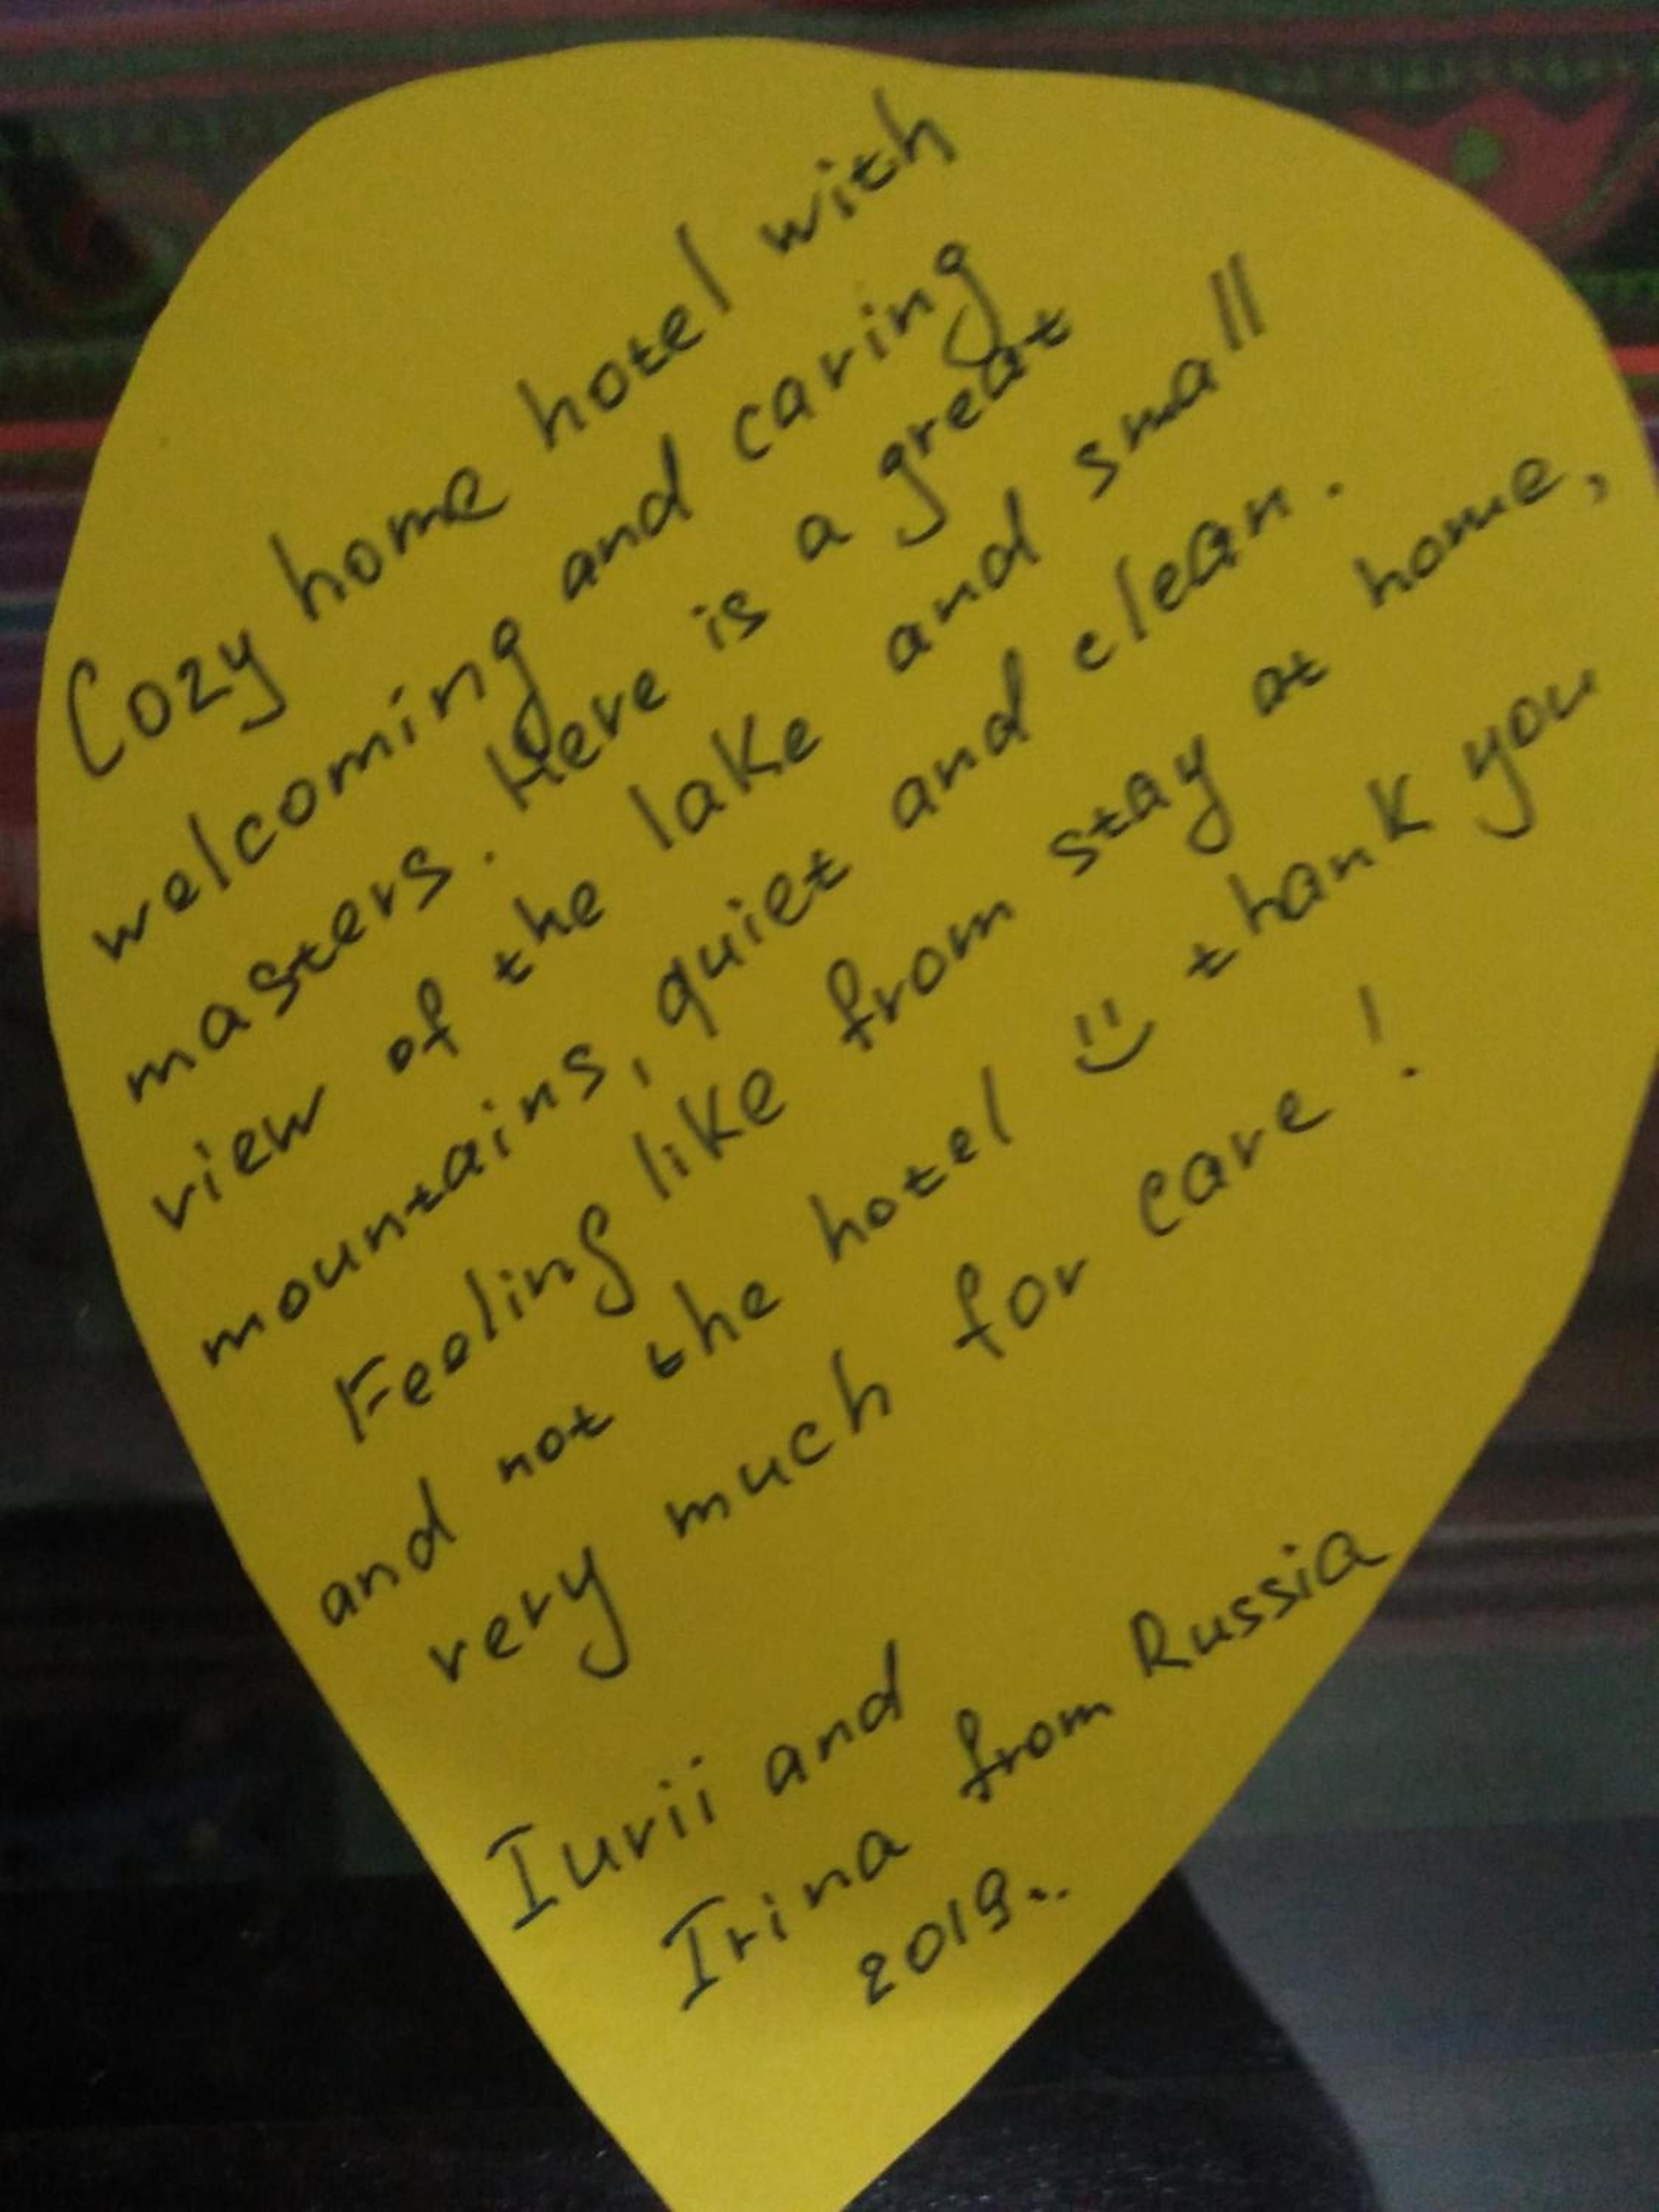 Cozy home hotel with
welcoming and caring
masters. Here is a great
view of the lake and small
mountains, quiet and clean.
Feeling like from stay at home,
and not the hotel :) thank you
very much for care!
Iurii and
Irina from Russia
2019..